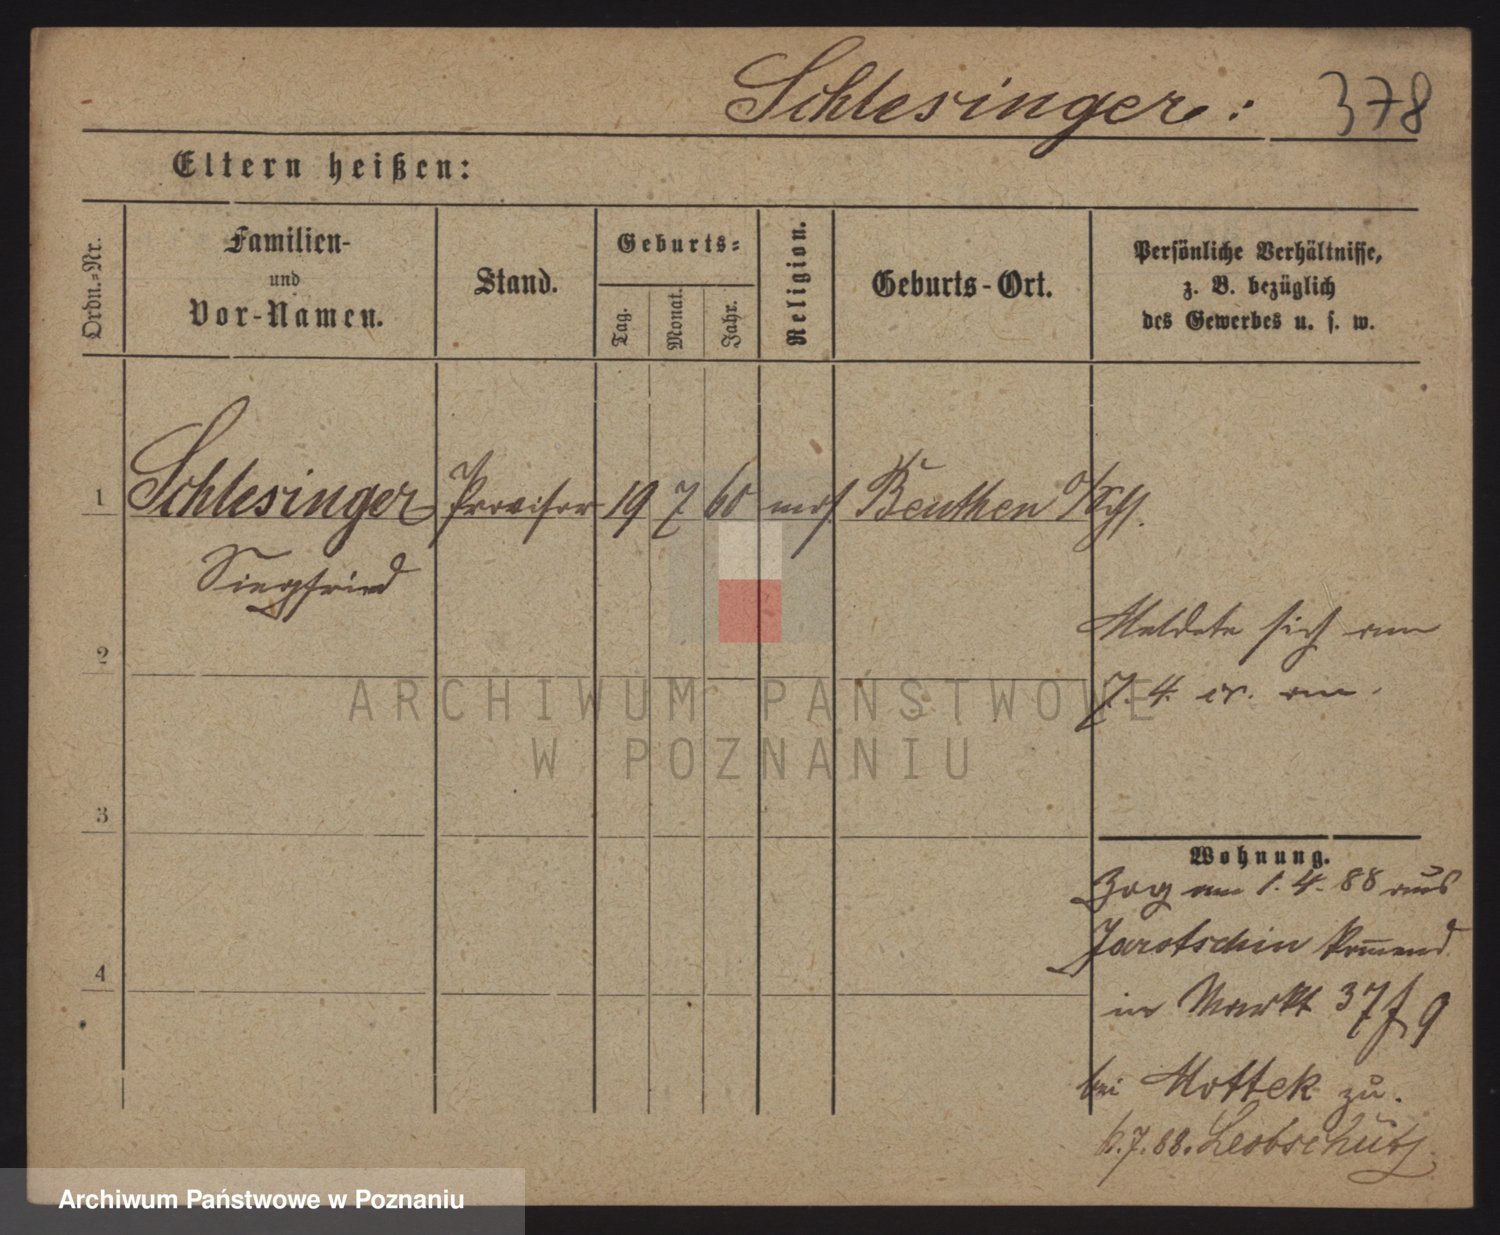 Schlesinger: 378
Eltern heißen:
Ordn.-Nr.
Familien-
und
Vor-Namen.
Stand.
Geburts-
Tag.
Monat.
Jahr.
Religion.
Geburts-Ort.
Persönliche Verhältnisse,
z. B. bezüglich
des Gewerbes u. s. w.
1 Schlesinger Provisor 19 7 60 mos. Beuthen O/Schl.
Siegfried
2
Meldete sich am
7. 4. cr. an.
ARCHIWUM PAŃSTWOWE
W POZNANIU
3
Wohnung.
Zog am 1. 4. 88 aus
Jarotschin kommend
4
in Markt 37 f 9
bei Mottek zu.
7. 88. Leobschütz.
Archiwum Państwowe w Poznaniu